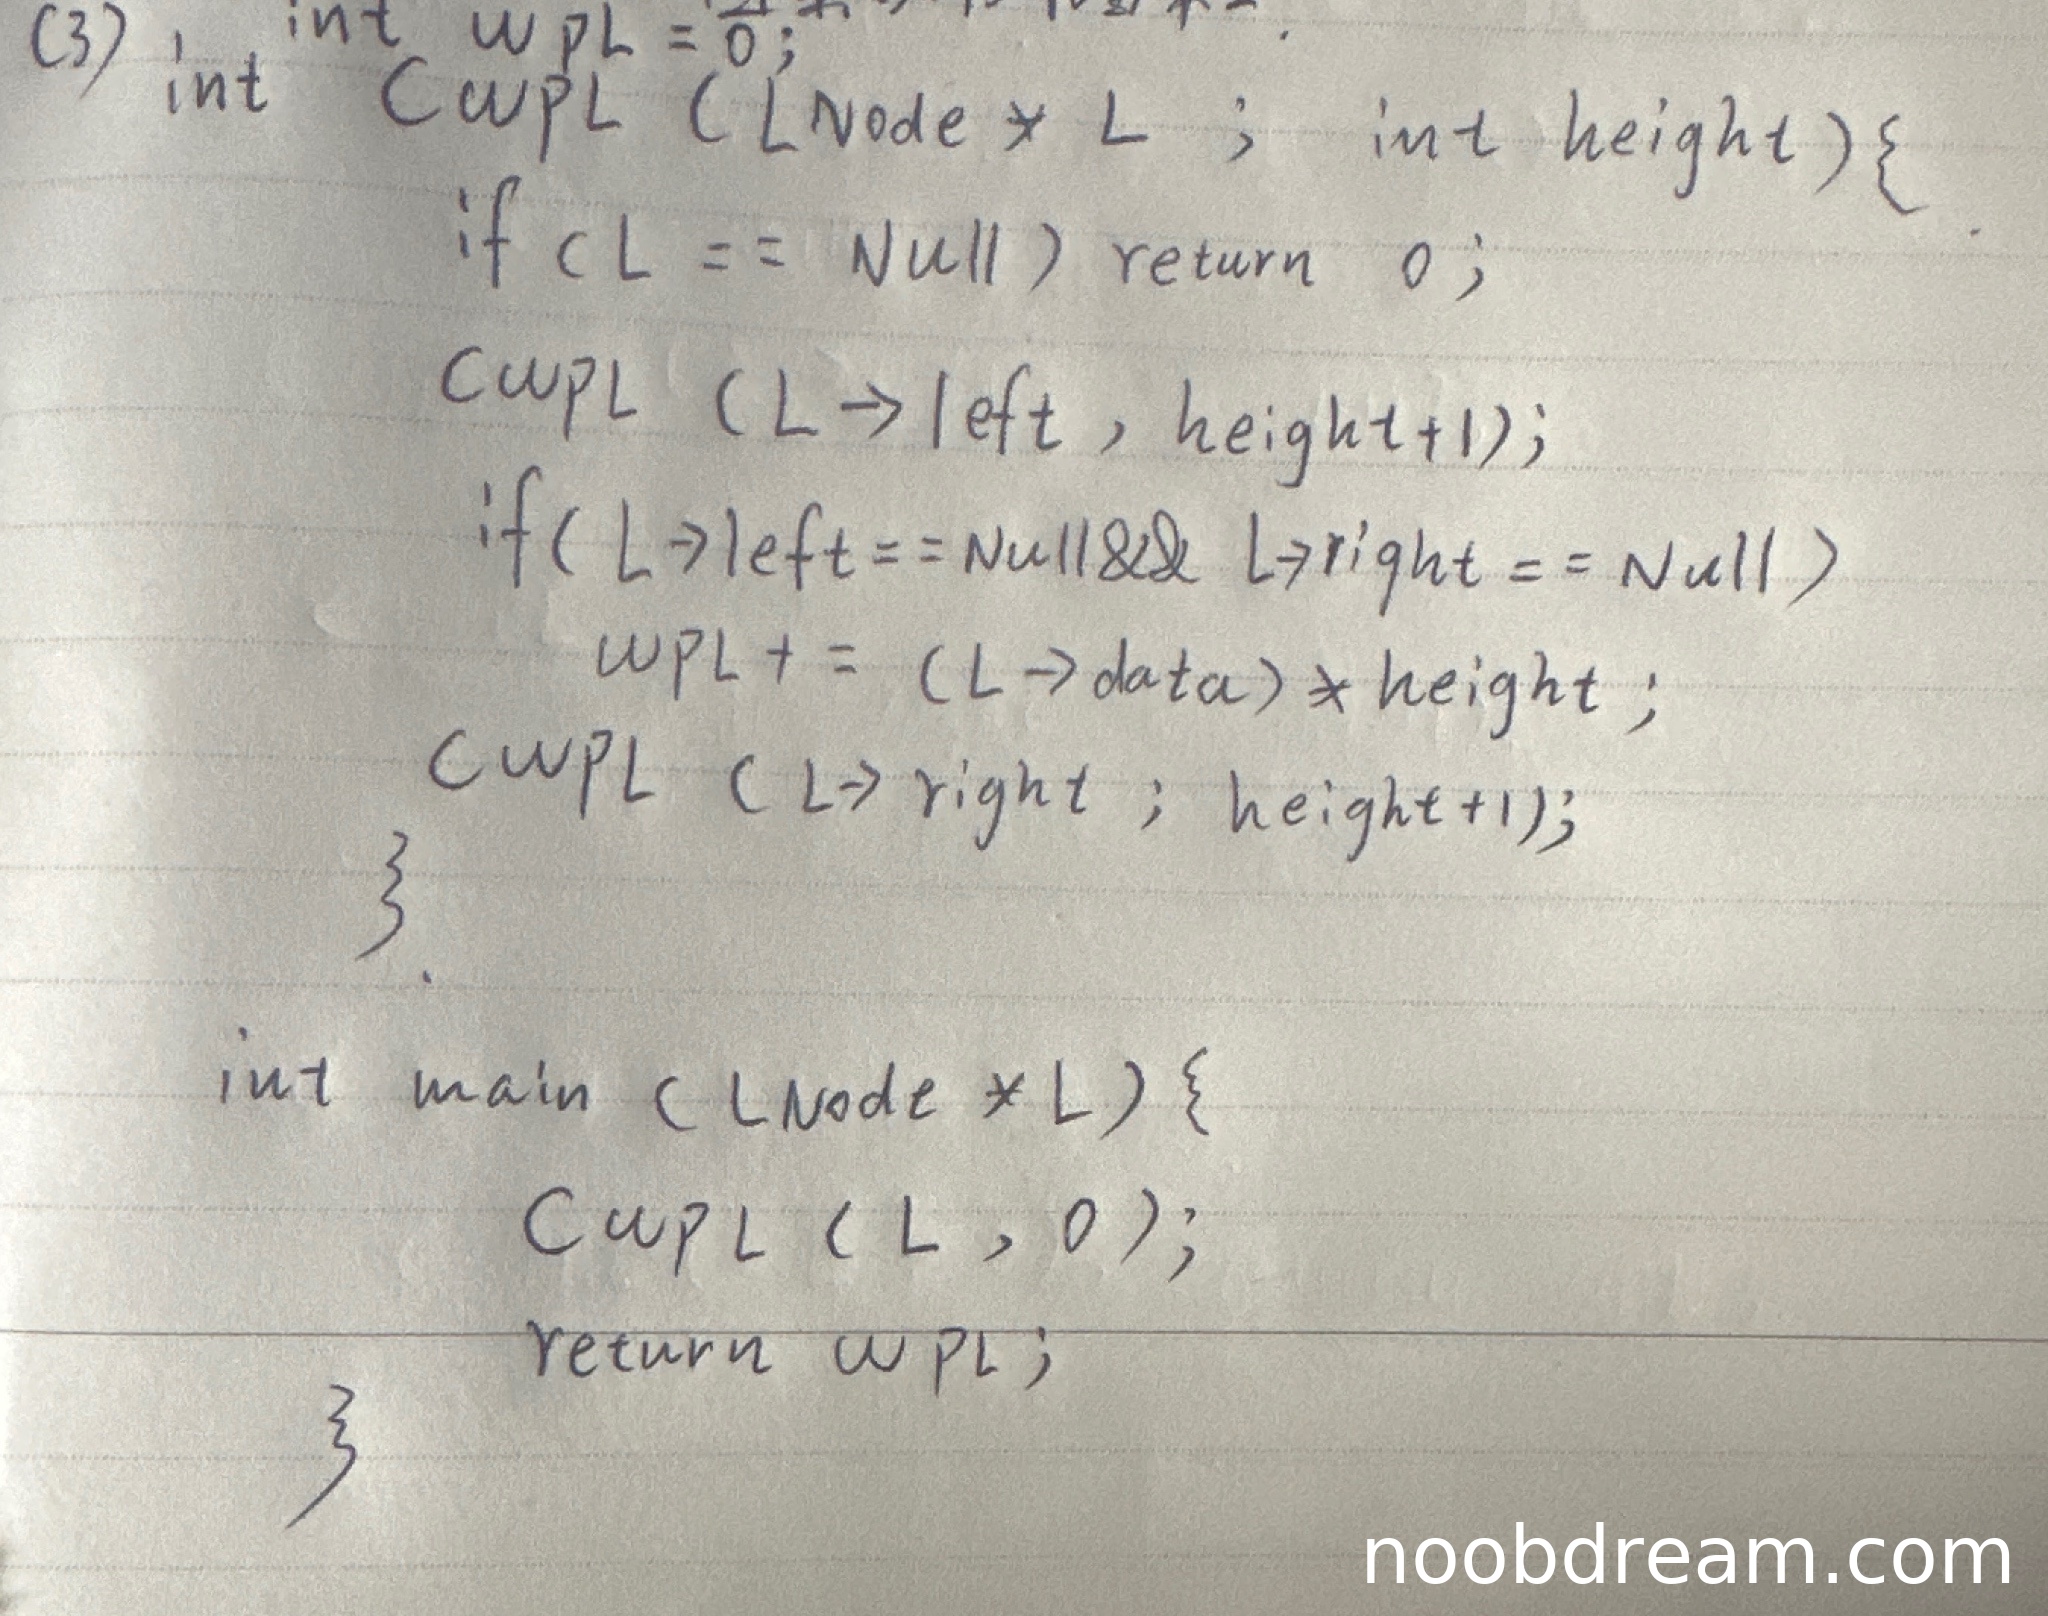 (3) int wpL = 0;
int CwpL (LNode * L ; int height){
if (L == Null) return 0;
CwpL (L→left , height+1);
if( L→left==Null&& L→right == Null)
wpL + = (L→data) * height ;
CwpL (L→right ; height+1);
}
int main (LNode *L) {
CwpL ( L , 0 );
return wpL;
}
noobdream.com